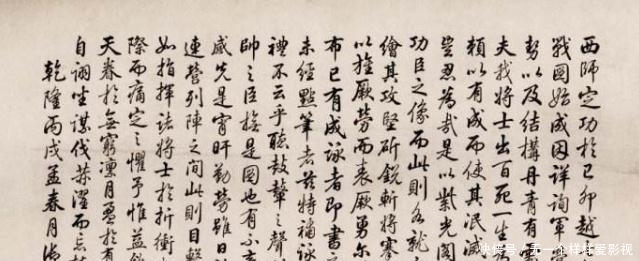 西師定功於己卯越
戰圖始成因詳詢軍
勢以及結構丹青有
夫我將士出百死一生
賴以有成而使其泯滅
豈忍為哉是以紫光閣
功臣之像而此則各就
繪其攻堅斫銳斬將搴
以旌厥勞而表厥勇爾
布已有成詠者即書
未經點筆者茲特補詠
禮不云乎聽鼓鼙之聲
帥之臣於是圖也有不
感先是宵旰勤勞雖日
連營列陣之間此則目擊
如指揮諸將士於折衝
際而痛定之懼予惟益
天眷於無窮凜月盈於
自詡坐謀伐 濯而忘
乾隆丙戌孟春月
快传号/ 一个样样爱影视